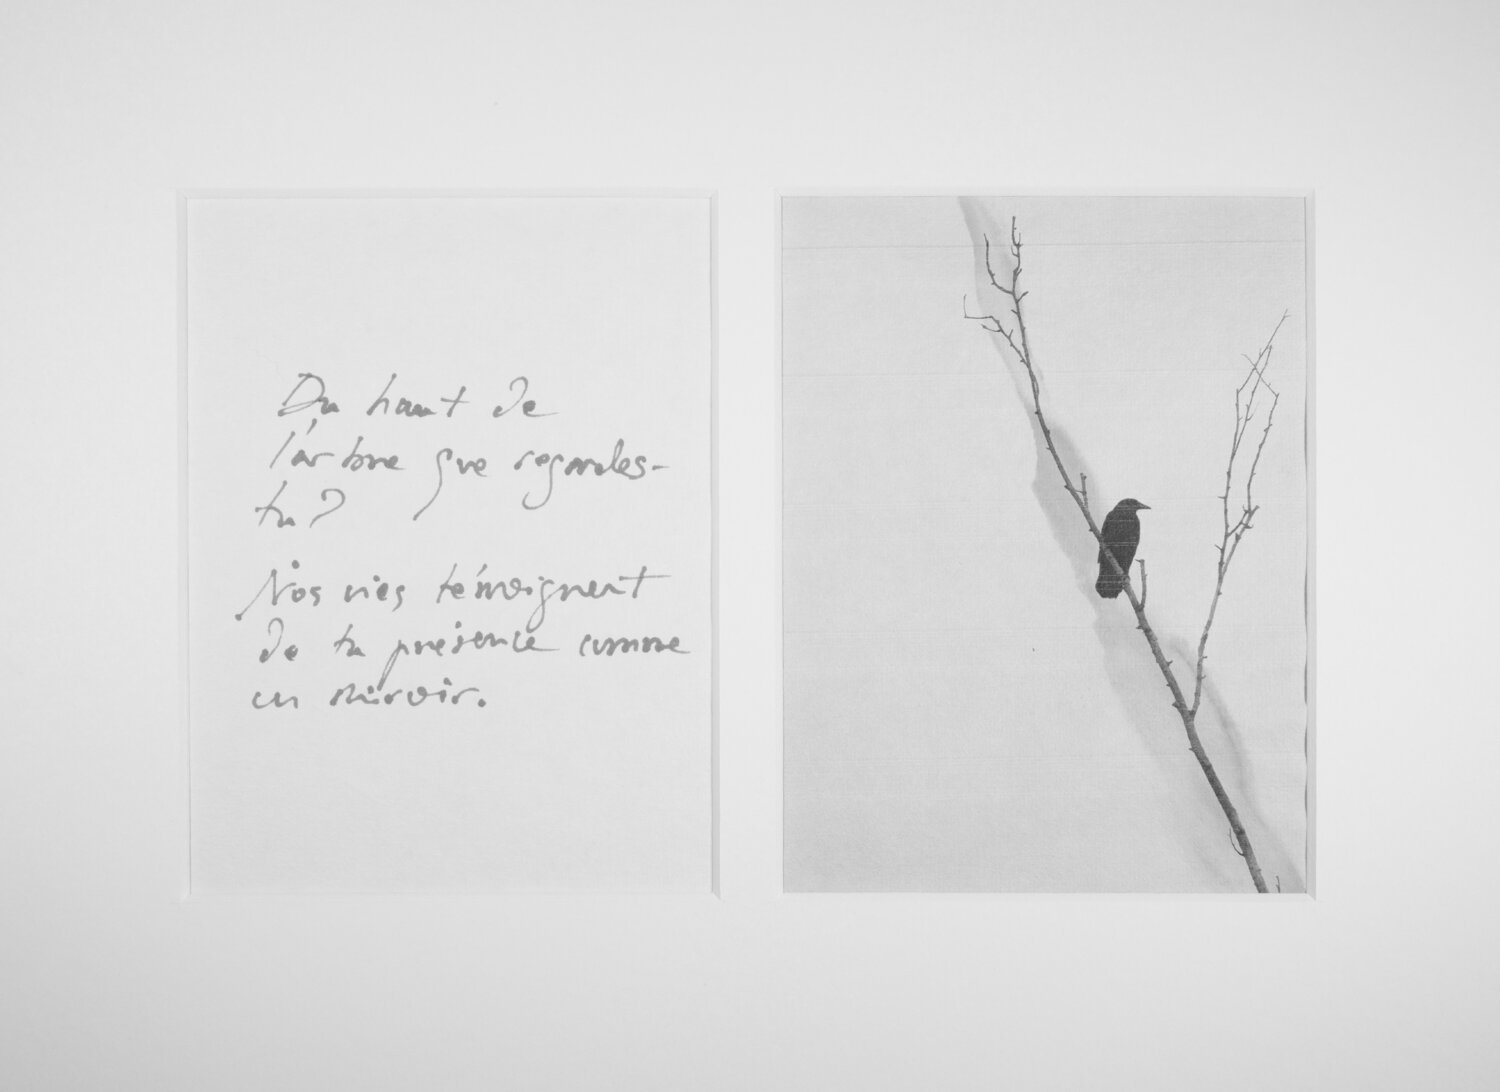 Du haut de
l'arbre que regardes-
tu?
Nos vies témoignent
de ta présence comme
un miroir.